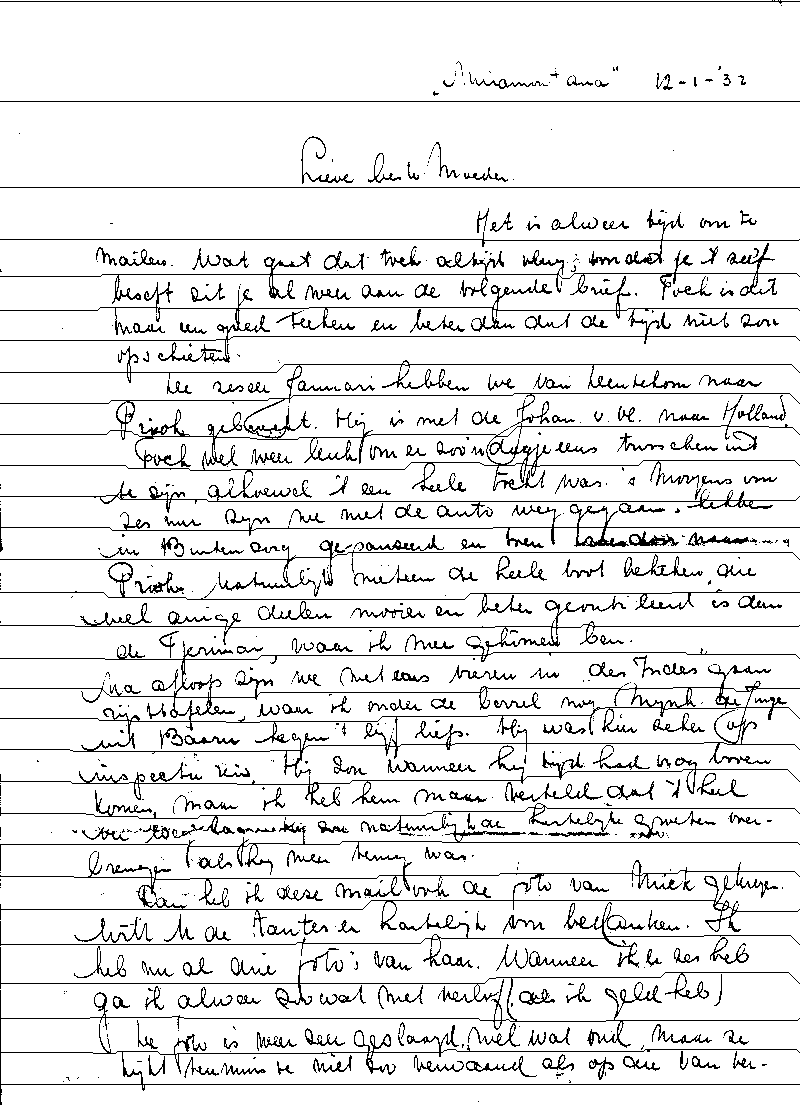 "Miramontana" 12-1-'32
Lieve beste Moeder.
Het is alweer tijd om te
mailen. Wat gaat dat toch altijd vlug; omdat je 't zelf
beseft zit je al weer aan de volgende brief. Toch is dit
maar een goed teeken en beter dan dat de tijd niet zou
opschieten.
De zesee Januari hebben we van Leentekom naar
Priok gebracht. Hij is met de Johan v. O. naar Holland.
Toch wel weer leuk om er zoo'n dagje eens tusschen uit
te zijn, alhoewel 't een heele tocht was. 's Morgens om
zes uur zijn we met de auto weggegaan. hebben
in Buitenzorg gepauseerd en toen
Priok. Natuurlijk meteen de heele boot bekeken, die
veel eenige deelen mooier en beter geoutilleerd is dan
de Tjerimai, waar ik mee gekomen ben.
Na afloop zijn we met ons vieren in "des Indes" gaan
rijsttafelen, waar ik onder de borrel nog Mijnh. de Jonge
uit Baarn tegen 't lijf liep. Hij was hier zeker op
inspectie reis. Hij zou wanneer hij tijd had nog boven
komen, maar ik heb hem maar verteld dat 't heel
zou natuurlijk de hartelijke groeten over-
brengen als hij weer terug was.
Dan heb ik deze mail ook de foto van Miek gekregen.
Wilt U de Tantes er hartelijk voor bedanken. Ik
heb nu al drie foto's van haar. Wanneer ik er zes heb
ga ik alweer zoowat met verlof (als ik geld heb)
De foto is weer zeer geslaagd, wel wat oud, maar ze
kijkt tenminste niet zoo verwaand als op die van ver-